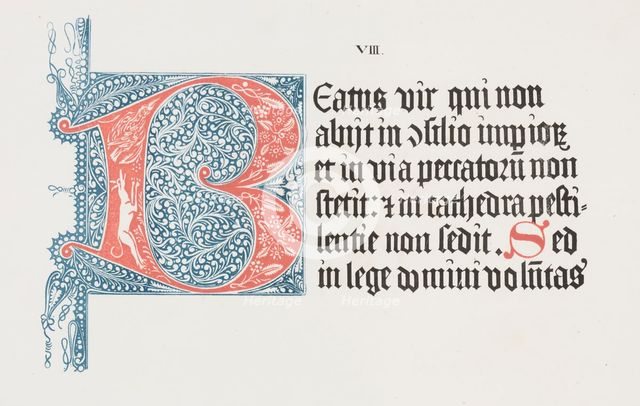 VIII.
BEatus vir qui non
abijt in ꝯsilio impioꝝ
et in via peccatorū non
stetit: ⁊ in cathedra pesti-
lentie non sedit. Sed
in lege domini volūtas
Heritage
Heritage
Heritage
Heritage